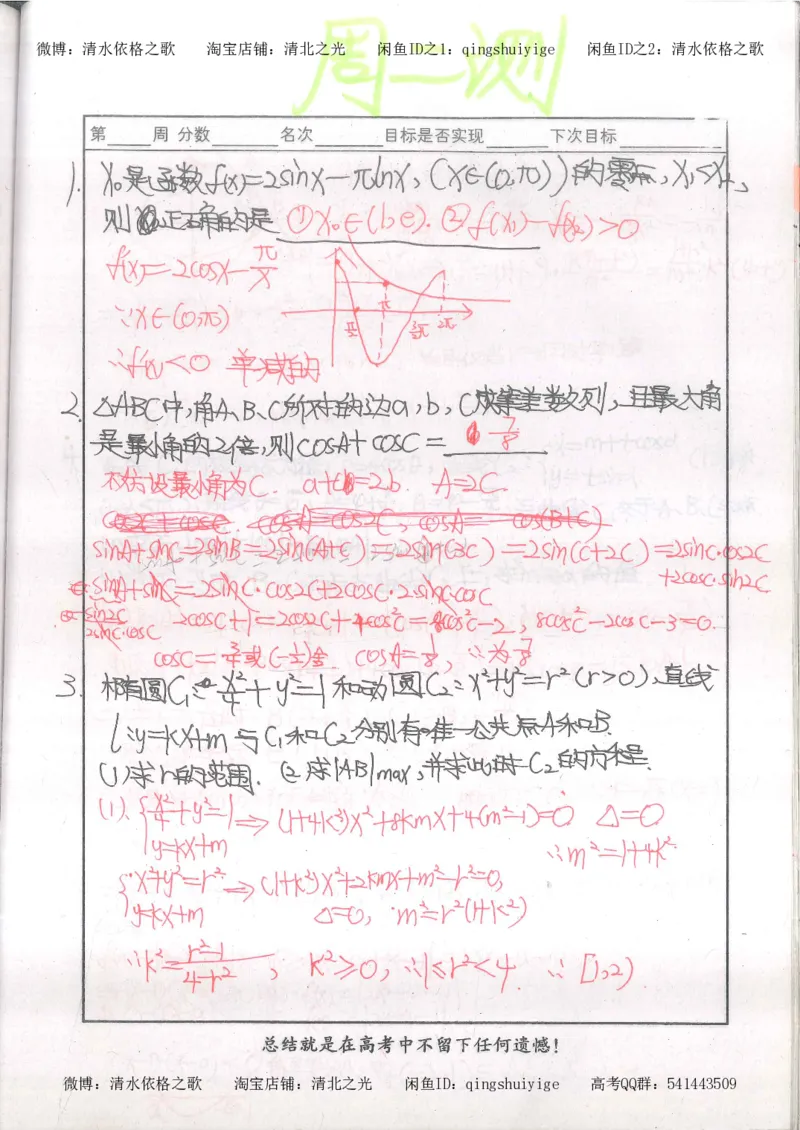 周一测
微博：清水依格之歌 淘宝店铺：清北之光 闲鱼ID之1：qingshuiyige 闲鱼ID之2：清水依格之歌
第 周 分数 名次 目标是否实现 下次目标
1. X₀是函数f(x)=2sinx-πlnx, (x∈(0,π))的零点, X₁<X₂,
则 正确的是 ①X₀∈(1,e). ②f(x₁)-f(x₂)>0
f'(x)=2cosx-π/x
∵x∈(0,π)
π/2 π 3/2π 2π
∴f'(x)<0 单减的
2. △ABC中,角A、B、C所对的边a,b,c成等差数列,且最大角
是最小角的2倍,则cosA+cosC= 7/8
不妨设最小角为C. a+c=2b. A=2C
cosA=cos2C, cosA= cos(B+C)
sinA+sinC=2sinB=2sin(A+C)=2sin(3C)=2sin(C+2C)=2sinC·cos2C
+2cosC·sin2C
sinA+sinC=2sinC·cos2C+2cosC·2sinC·cosC
sin2C
2sinC·cosC
2cosC+1=2cos2C+4cos²C=8cos²C-2, 8cos²C-2cosC-3=0.
cosC=3/4或(-1/2)舍. cosA=1/8, ∴为7/8
3. 椭圆C₁: x²/4+y²=1和动圆C₂: x²+y²=r²(r>0),直线
l:y=kx+m与C₁和C₂分别有唯一公共点A和B.
(1)求r的范围. (2)求|AB|max,并求此时C₂的方程.
(1). {x²/4+y²=1 y=kx+m ⇒ (1+4k²)x²+8kmx+4(m²-1)=0 △=0
∴m²=1+4k²
{x²+y²=r² y=kx+m ⇒ (1+k²)x²+2kmx+m²-r²=0,
△=0, m²=r²(1+k²)
∴k²=(r²-1)/(4-r²), k²≥0, ∴1≤r²<4 ∴[1,2)
总结就是在高考中不留下任何遗憾！
微博：清水依格之歌 淘宝店铺：清北之光 闲鱼ID：qingshuiyige 高考QQ群：541443509